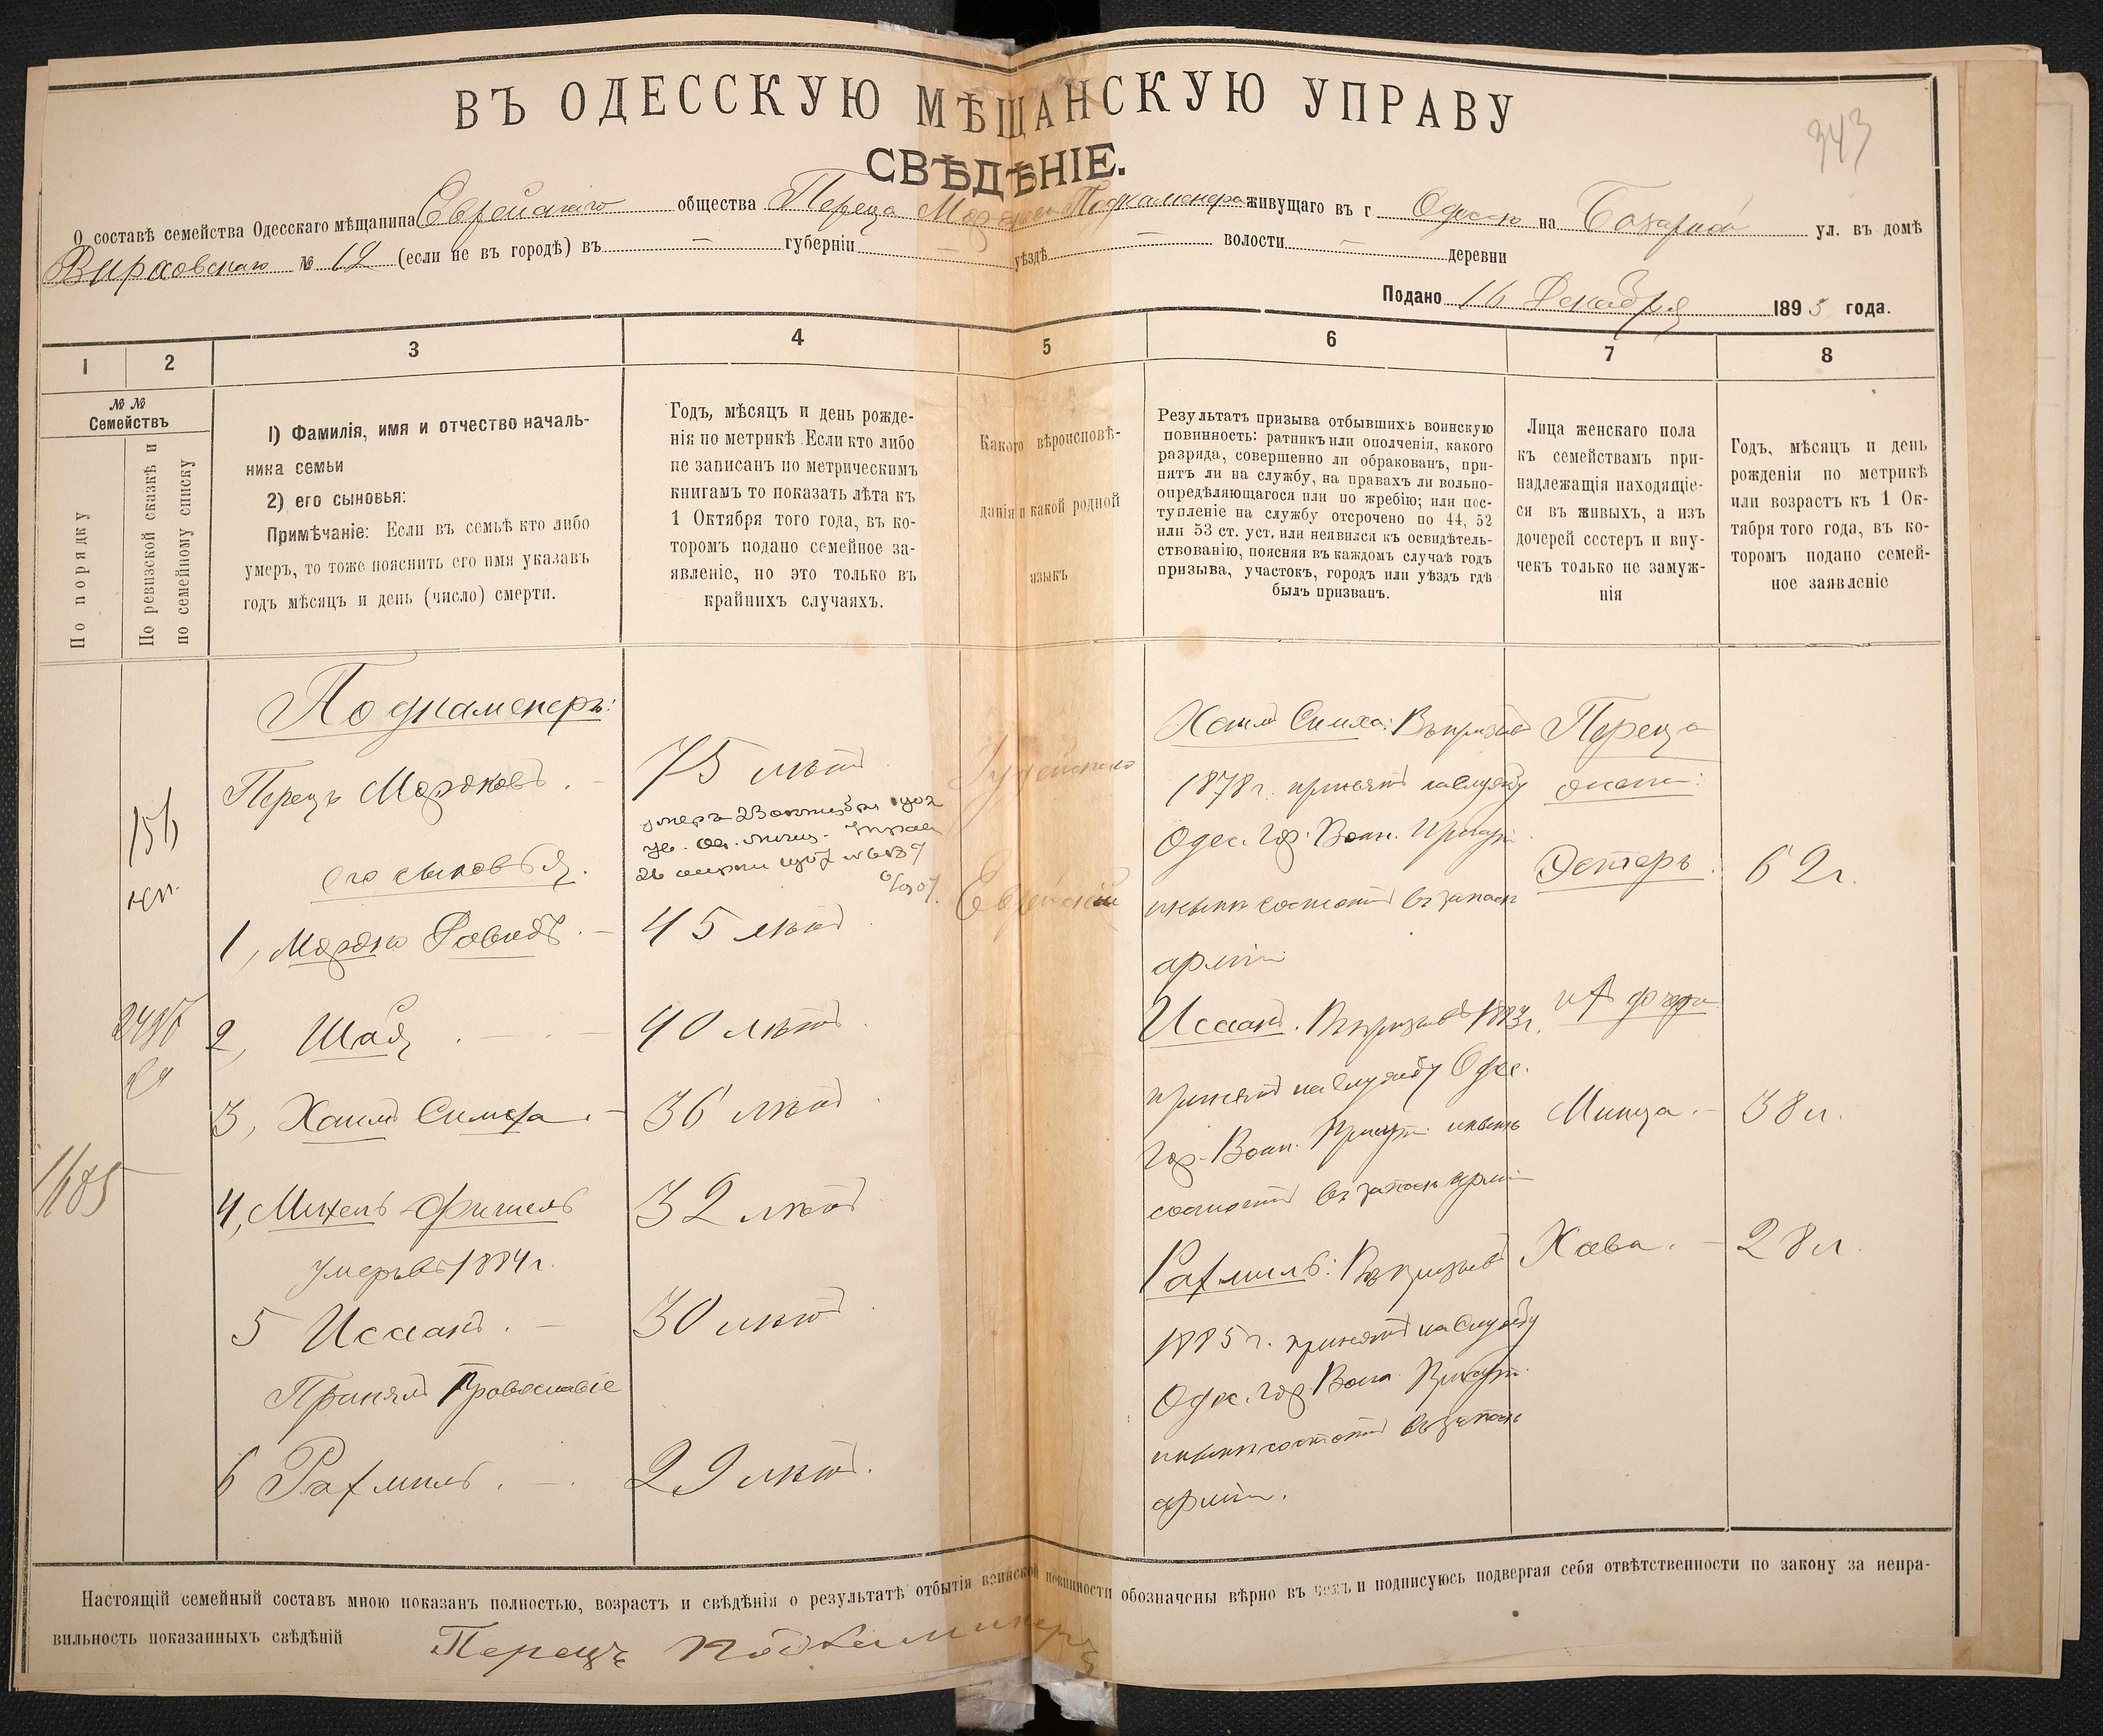 ВЪ ОДЕССКУЮ МѢЩАНСКУЮ УПРАВУ
343
СВѢДѢНІЕ.
О составѣ семейства Одесскаго мѣщанина Еврейскаго общества Переца Подкаменера живущаго въ г Одессѣ на Базарной ул. въ домѣ
№ 12 (если не въ городѣ) въ — губерніи — уѣздѣ — волости — деревни
Подано 16 Декабря 1895 года.
1 2 3 4 5 6 7 8
№№ Семействъ
По порядку
По ревизской сказкѣ и
по семейному списку
1) Фамилія, имя и отчество началь-
ника семьи
2) его сыновья:
Примѣчаніе: Если въ семьѣ кто либо
умеръ, то тоже пояснить его имя указавъ
годъ мѣсяцъ и день (число) смерти.
Годъ, мѣсяцъ и день рожде-
нія по метрикѣ. Если кто либо
не записанъ по метрическимъ
книгамъ то показать лѣта къ
1 Октября того года, въ ко-
торомъ подано семейное за-
явленіе, но это только въ
крайнихъ случаяхъ.
Какого вѣроисповѣ-
данія и какой родной
языкъ
Результатъ призыва отбывшихъ воинскую
повинность: ратникъ или ополченія, какого
разряда, совершенно ли обракованъ, при-
нятъ ли на службу, на правахъ ли вольно-
опредѣляющагося или по жребію; или пос-
тупленіе на службу отсрочено по 44, 52
или 53 ст. уст. или неявился къ освидѣтель-
ствованію, поясняя въ каждомъ случаѣ годъ
призыва, участокъ, городъ или уѣздъ гдѣ
былъ призванъ.
Лица женскаго пола
къ семействамъ при-
надлежащія находящіе-
ся въ живыхъ, а изъ
дочерей сестеръ и вну-
чекъ только не замуж-
нія
Годъ, мѣсяцъ и день
рожденія по метрикѣ
или возрастъ къ 1 Ок-
тября того года, въ ко-
торомъ подано семей-
ное заявленіе
Подкаменеръ:
Перецъ Мордковъ. —
его сыновья.
1, Мордко Довидъ. —
2, Шая. —
3, Хаимъ Симха. —
4, Михель Фишель
умеръ въ 1884 г.
5 Иссакъ. —
Принялъ Православіе
6 Рахмиль. —
156
1685
75 лѣтъ
умеръ 23 октября 1902
45 лѣтъ
40 лѣтъ
36 лѣтъ
32 лѣтъ
30 лѣтъ
29 лѣтъ.
Іудейскаго
Еврейскій
Хаимъ Симха: Въ призывъ
1878 г. принятъ на службу
Одес. Гор. Воин. Присут.
и нынѣ состоитъ въ запасѣ
арміи
Иссакъ. Въ призывъ 1883 г.
принятъ на службу Одес.
Гор. Воин. Присут. и нынѣ
состоитъ въ запасѣ арміи
Рахмиль: Въ призывъ
1885 г. принятъ на службу
Одес. Гор. Воин. Присут.
и нынѣ состоитъ въ запасѣ
арміи.
Переца
жена:
Эстеръ. 62 г.
дочери
Минца. — 38 л.
Хава. — 28 л.
Настоящій семейный составъ мною показанъ полностью, возрастъ и свѣдѣнія о результатѣ отбытія воинской повинности обозначены вѣрно въ чемъ и подписуюсь подвергая себя отвѣтственности по закону за непра-
вильность показанныхъ свѣдѣній Перецъ Подкаминеръ